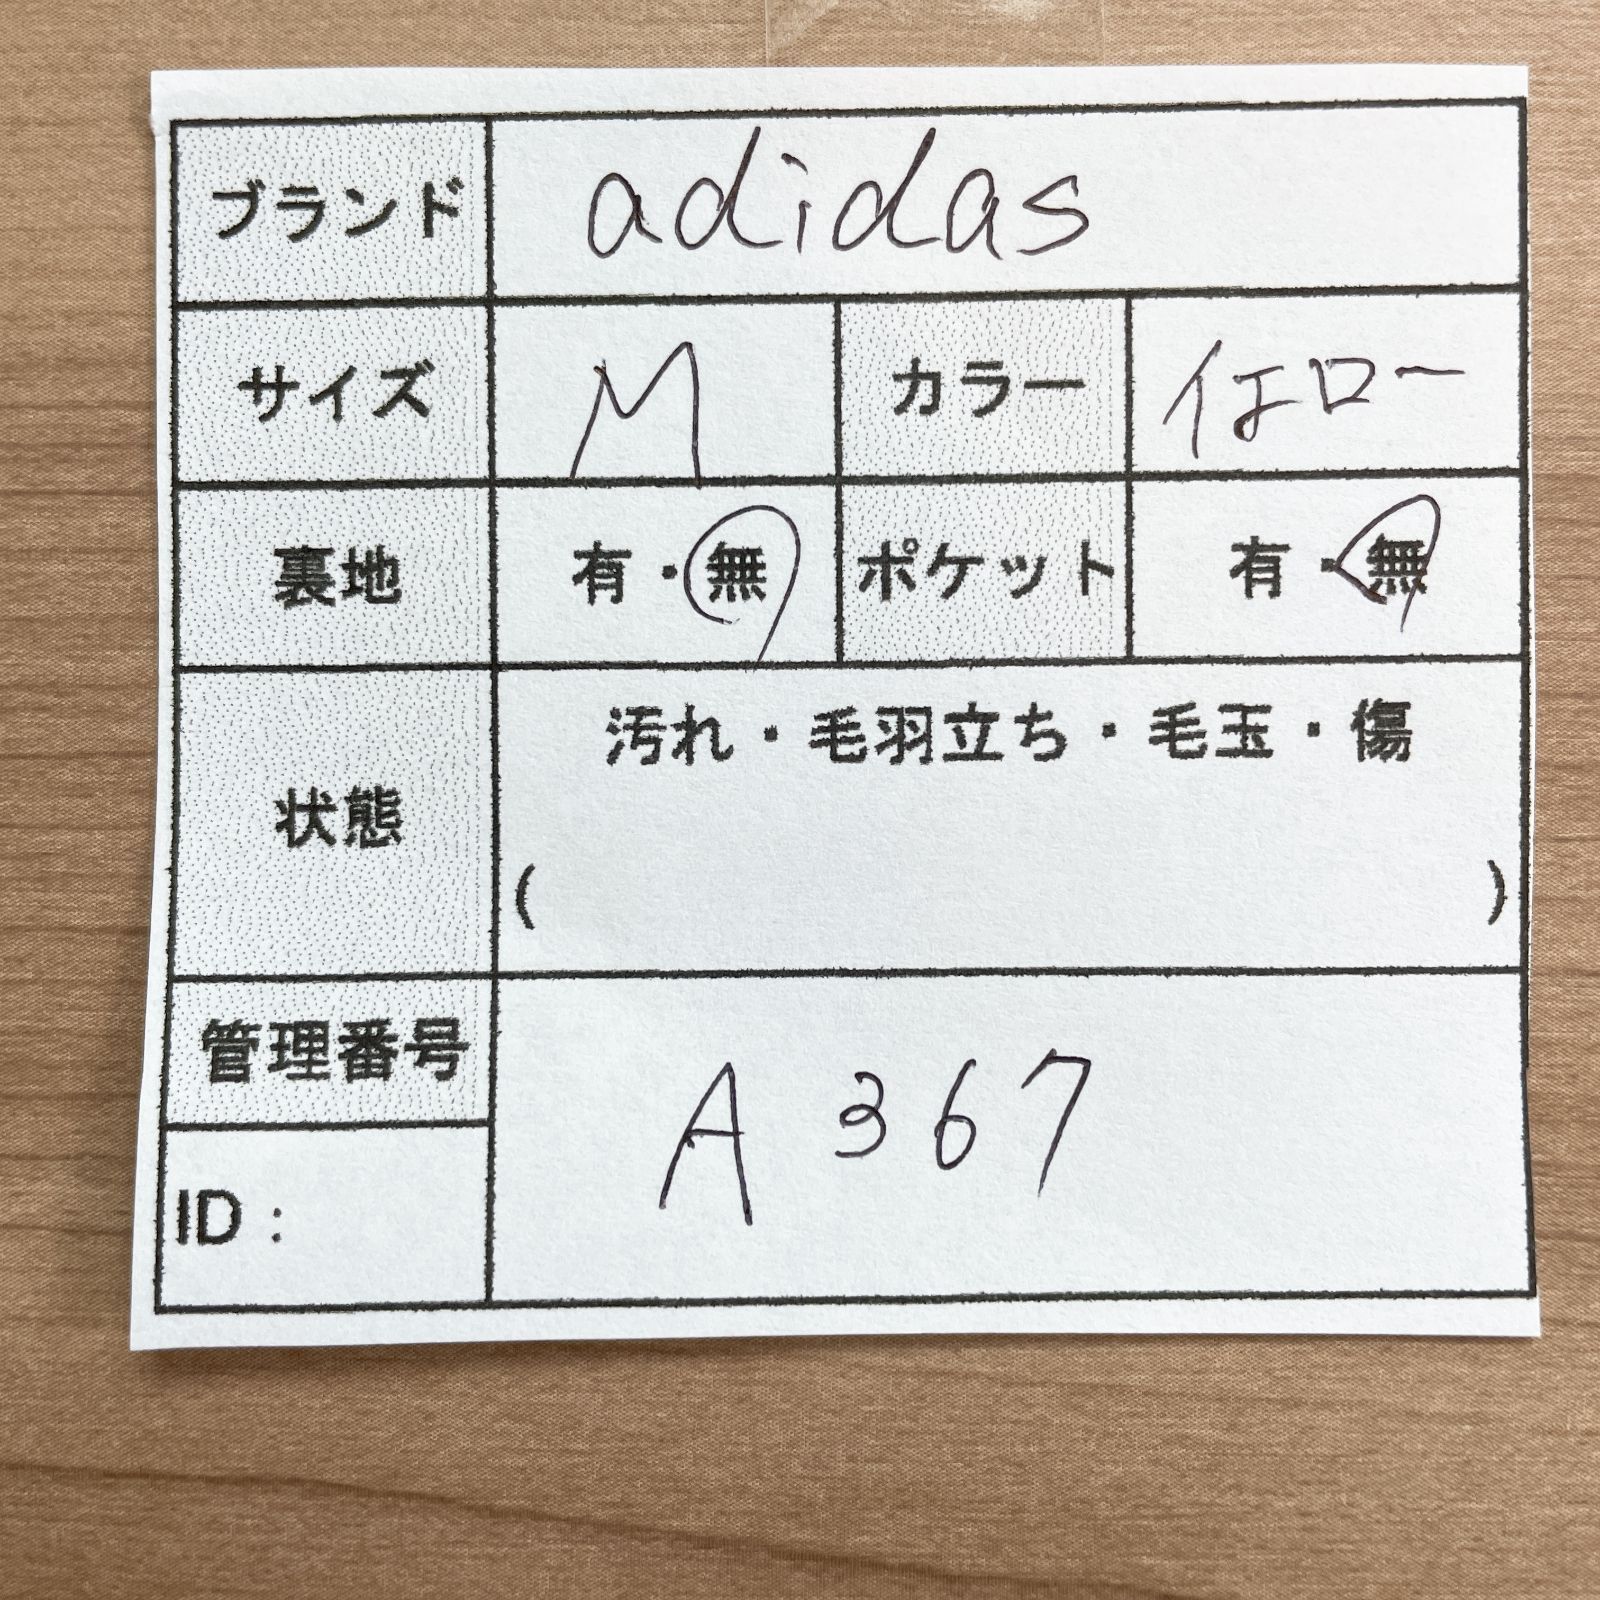 ブランド adidas
サイズ M カラー イエロー
裏地 有・無 ポケット 有・無
状態 汚れ・毛羽立ち・毛玉・傷
( )
管理番号 A367
ID：